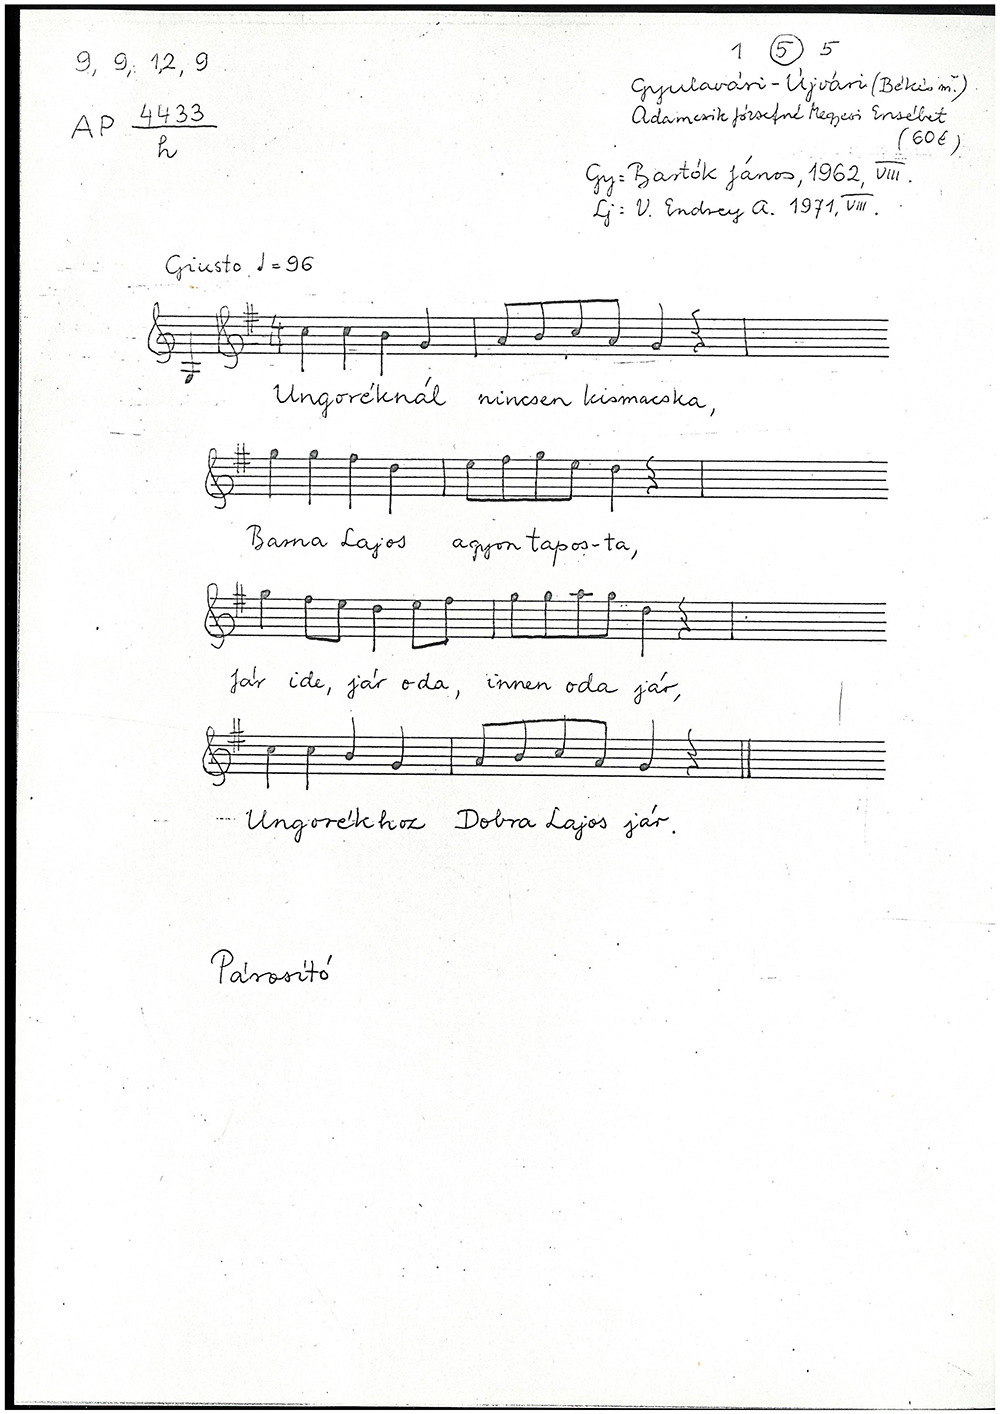 9, 9, 12, 9
AP 4433
h
1 5 5
Gyulavári-Újvári (Békés m.)
Adamcsik Józsefné Megyesi Erzsébet
(60é)
Gy= Bartók János, 1962, VIII.
Lj= V. Endrey A. 1971, VIII.
Giusto ♩=96
4
Ungoréknál nincsen kismacska,
Barna Lajos agyon tapos-ta,
Jár ide, jár oda, innen oda jár,
Ungorékhoz Dobra Lajos jár.
Párosító